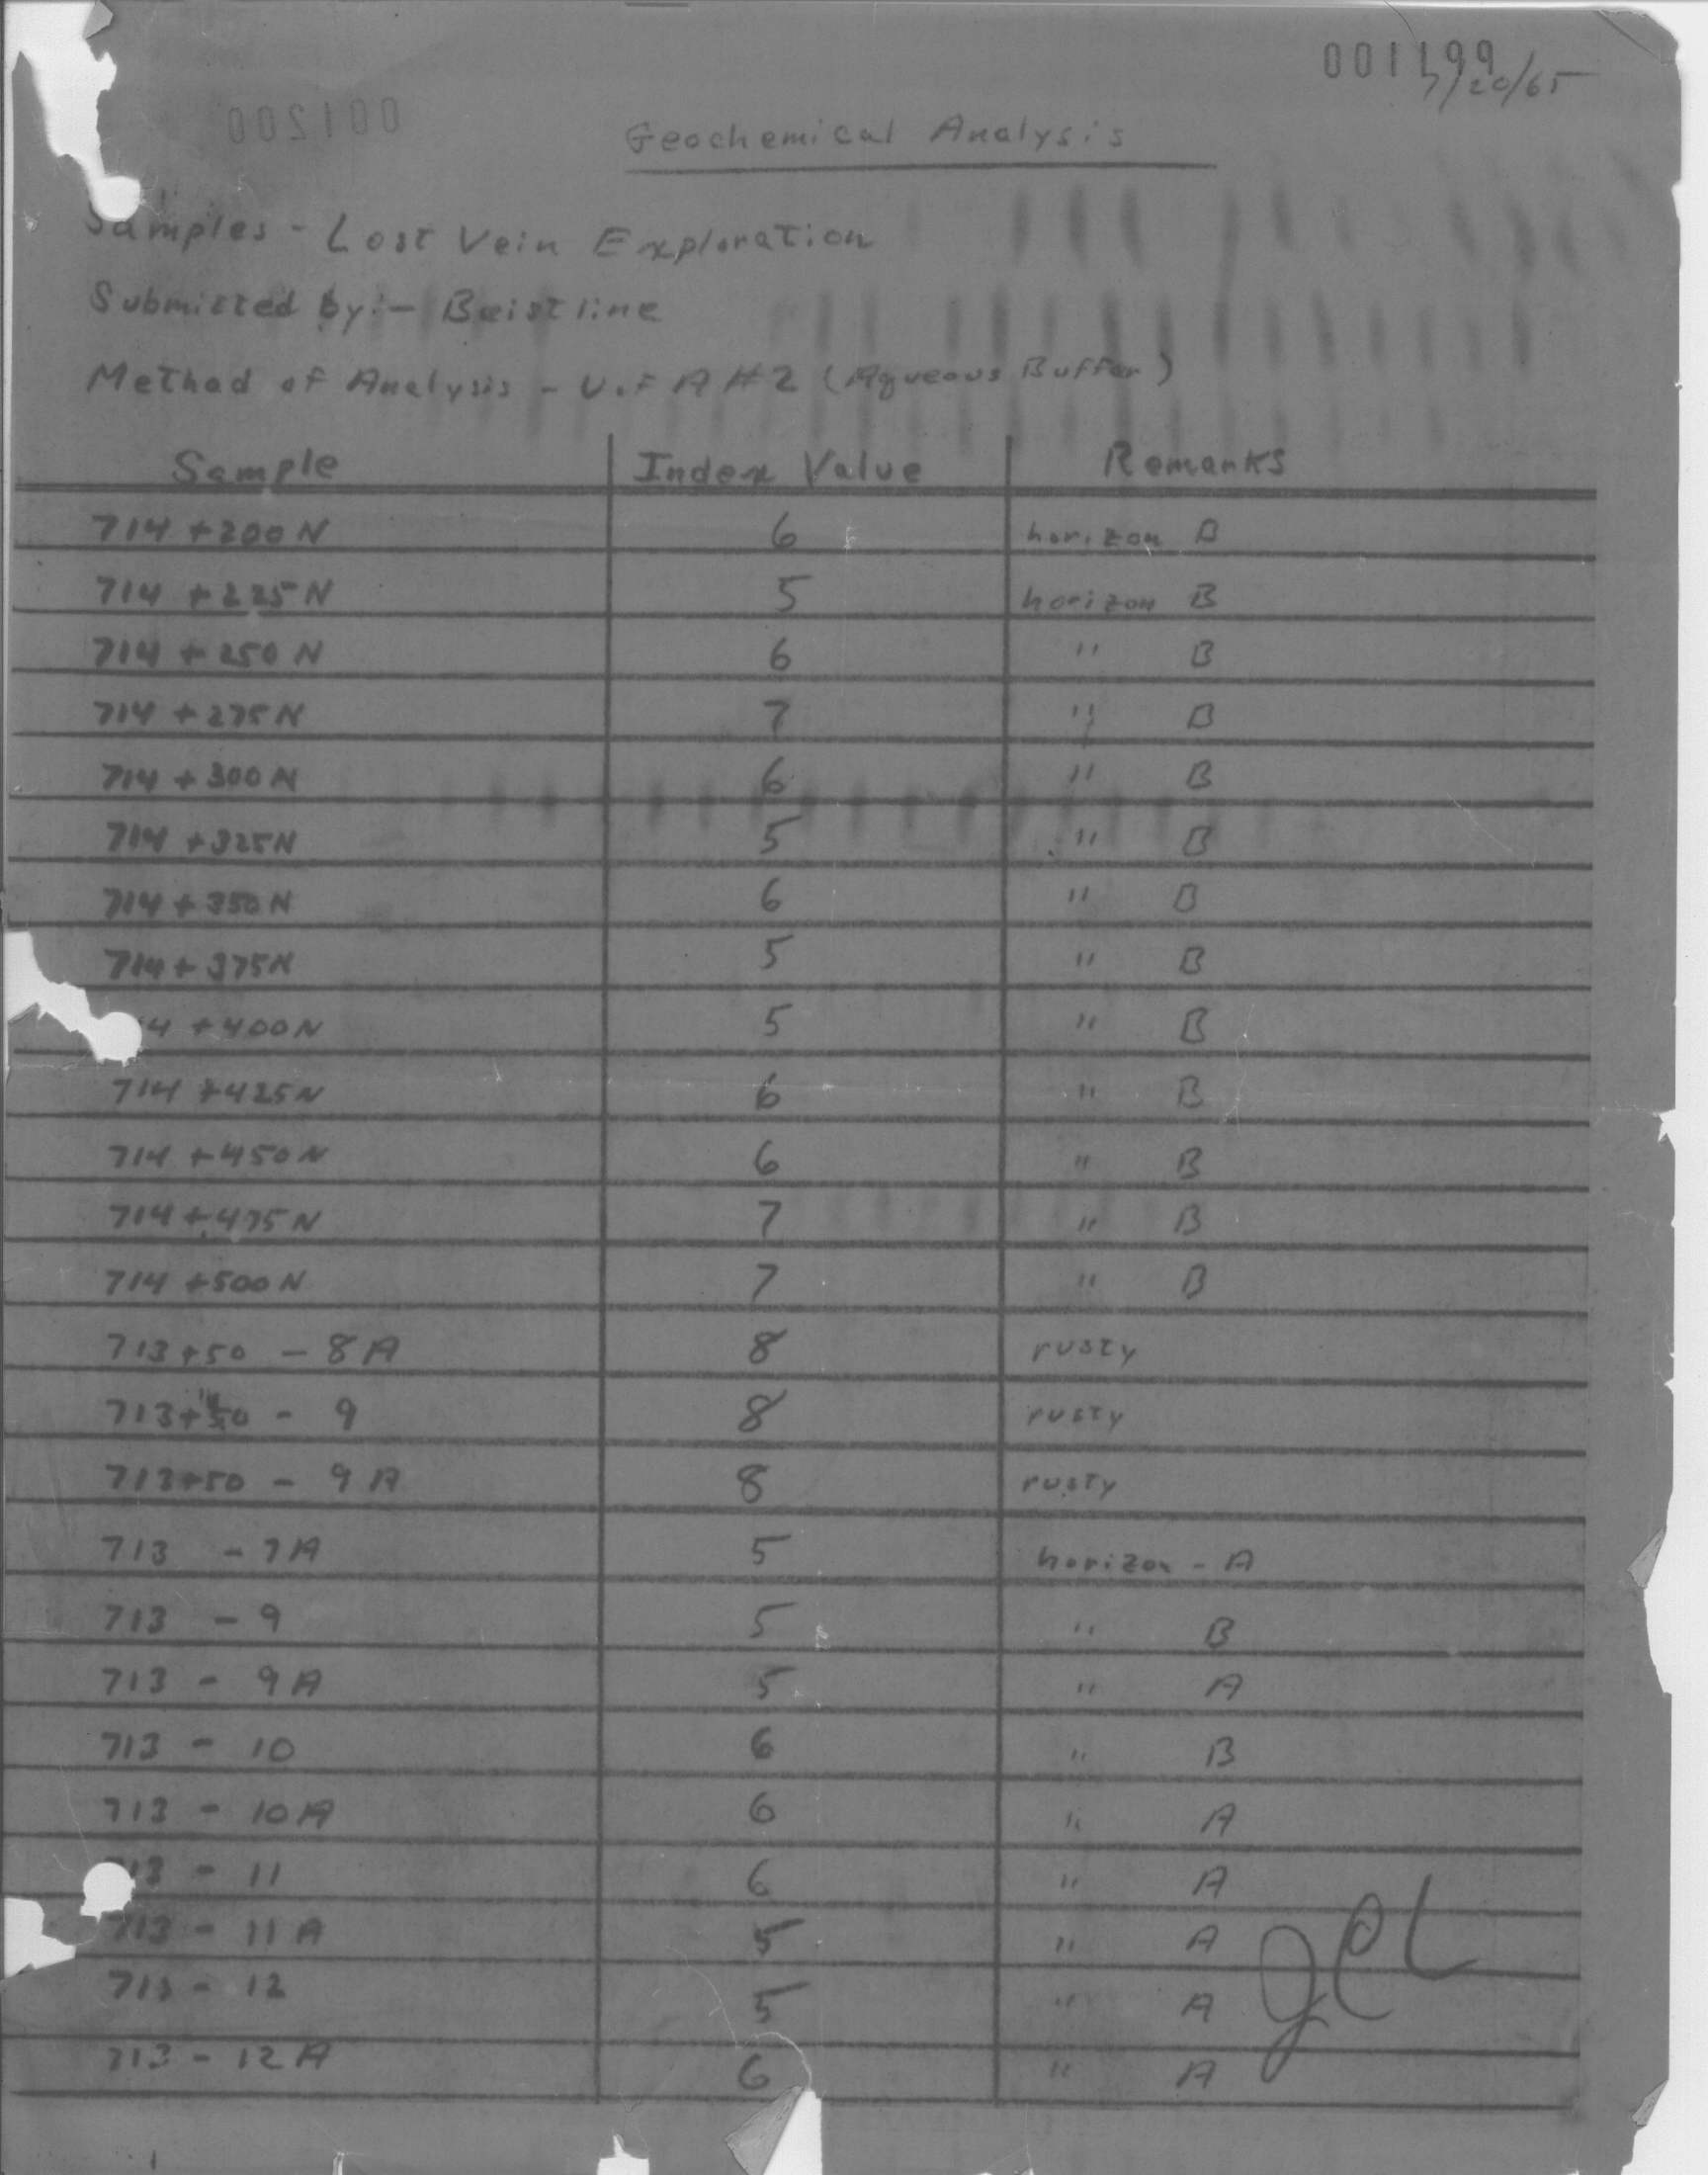 001199
7/20/65
001200
Geochemical Analysis
Samples - Lost Vein Exploration
Submitted by:- Beistline
Method of Analysis - U.of A #2 (Aqueous Buffer)
Sample Index Value Remarks
714 +200N 6 horizon B
714 +225N 5 horizon B
714 +250N 6 " B
714 +275N 7 " B
714 +300N 6 " B
714 +325N 5 " B
714 +350N 6 " B
714 +375N 5 " B
14 +400N 5 " B
714 +425N 6 " B
714 +450N 6 " B
714 +475N 7 " B
714 +500N 7 " B
713+50 - 8A 8 rusty
713+50 - 9 8 rusty
713+50 - 9A 8 rusty
713 - 7A 5 horizon - A
713 - 9 5 " B
713 - 9A 5 " A
713 - 10 6 " B
713 - 10A 6 " A
713 - 11 6 " A
713 - 11A 5 " A
713 - 12 5 " A
713 - 12A 6 " A